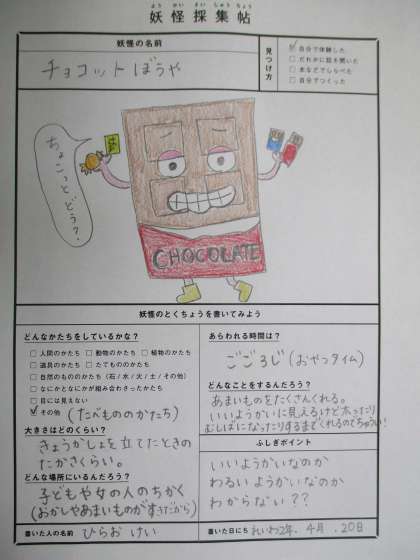 よう かい さい しゅう ちょう
妖怪採集帖
妖怪の名前
チョコットぼうや
見つけ方
自分で体験した
だれかに話を聞いた
本などでしらべた
自分でつくった
ちょこっとどう?
CHOCOLATE
妖怪のとくちょうを書いてみよう
どんなかたちをしているかな?
人間のかたち 動物のかたち 植物のかたち
道具のかたち たてもののかたち
自然のもののかたち(石/水/火/土/その他)
なにかとなにかが組み合わさったかたち
目には見えない
その他 (たべもののかたち)
大きさはどのくらい?
きょうかしょを立てたときの
たかさくらい。
どんな場所にいるんだろう?
子どもや女の人のちかく
(おかしやあまいものがすきだから)
あらわれる時間は?
ごご3じ(おやつタイム)
どんなことをするんだろう?
あまいものをたくさんくれる。
いいようかいに見えるけど太ったり
むしばになったりするまでくれるのでちゅうい!
ふしぎポイント
いいようかいなのか
わるいようかいなのか
わからない??
書いた人の名前 ひらお けい
書いた日にち れいわ2年.4月.20日